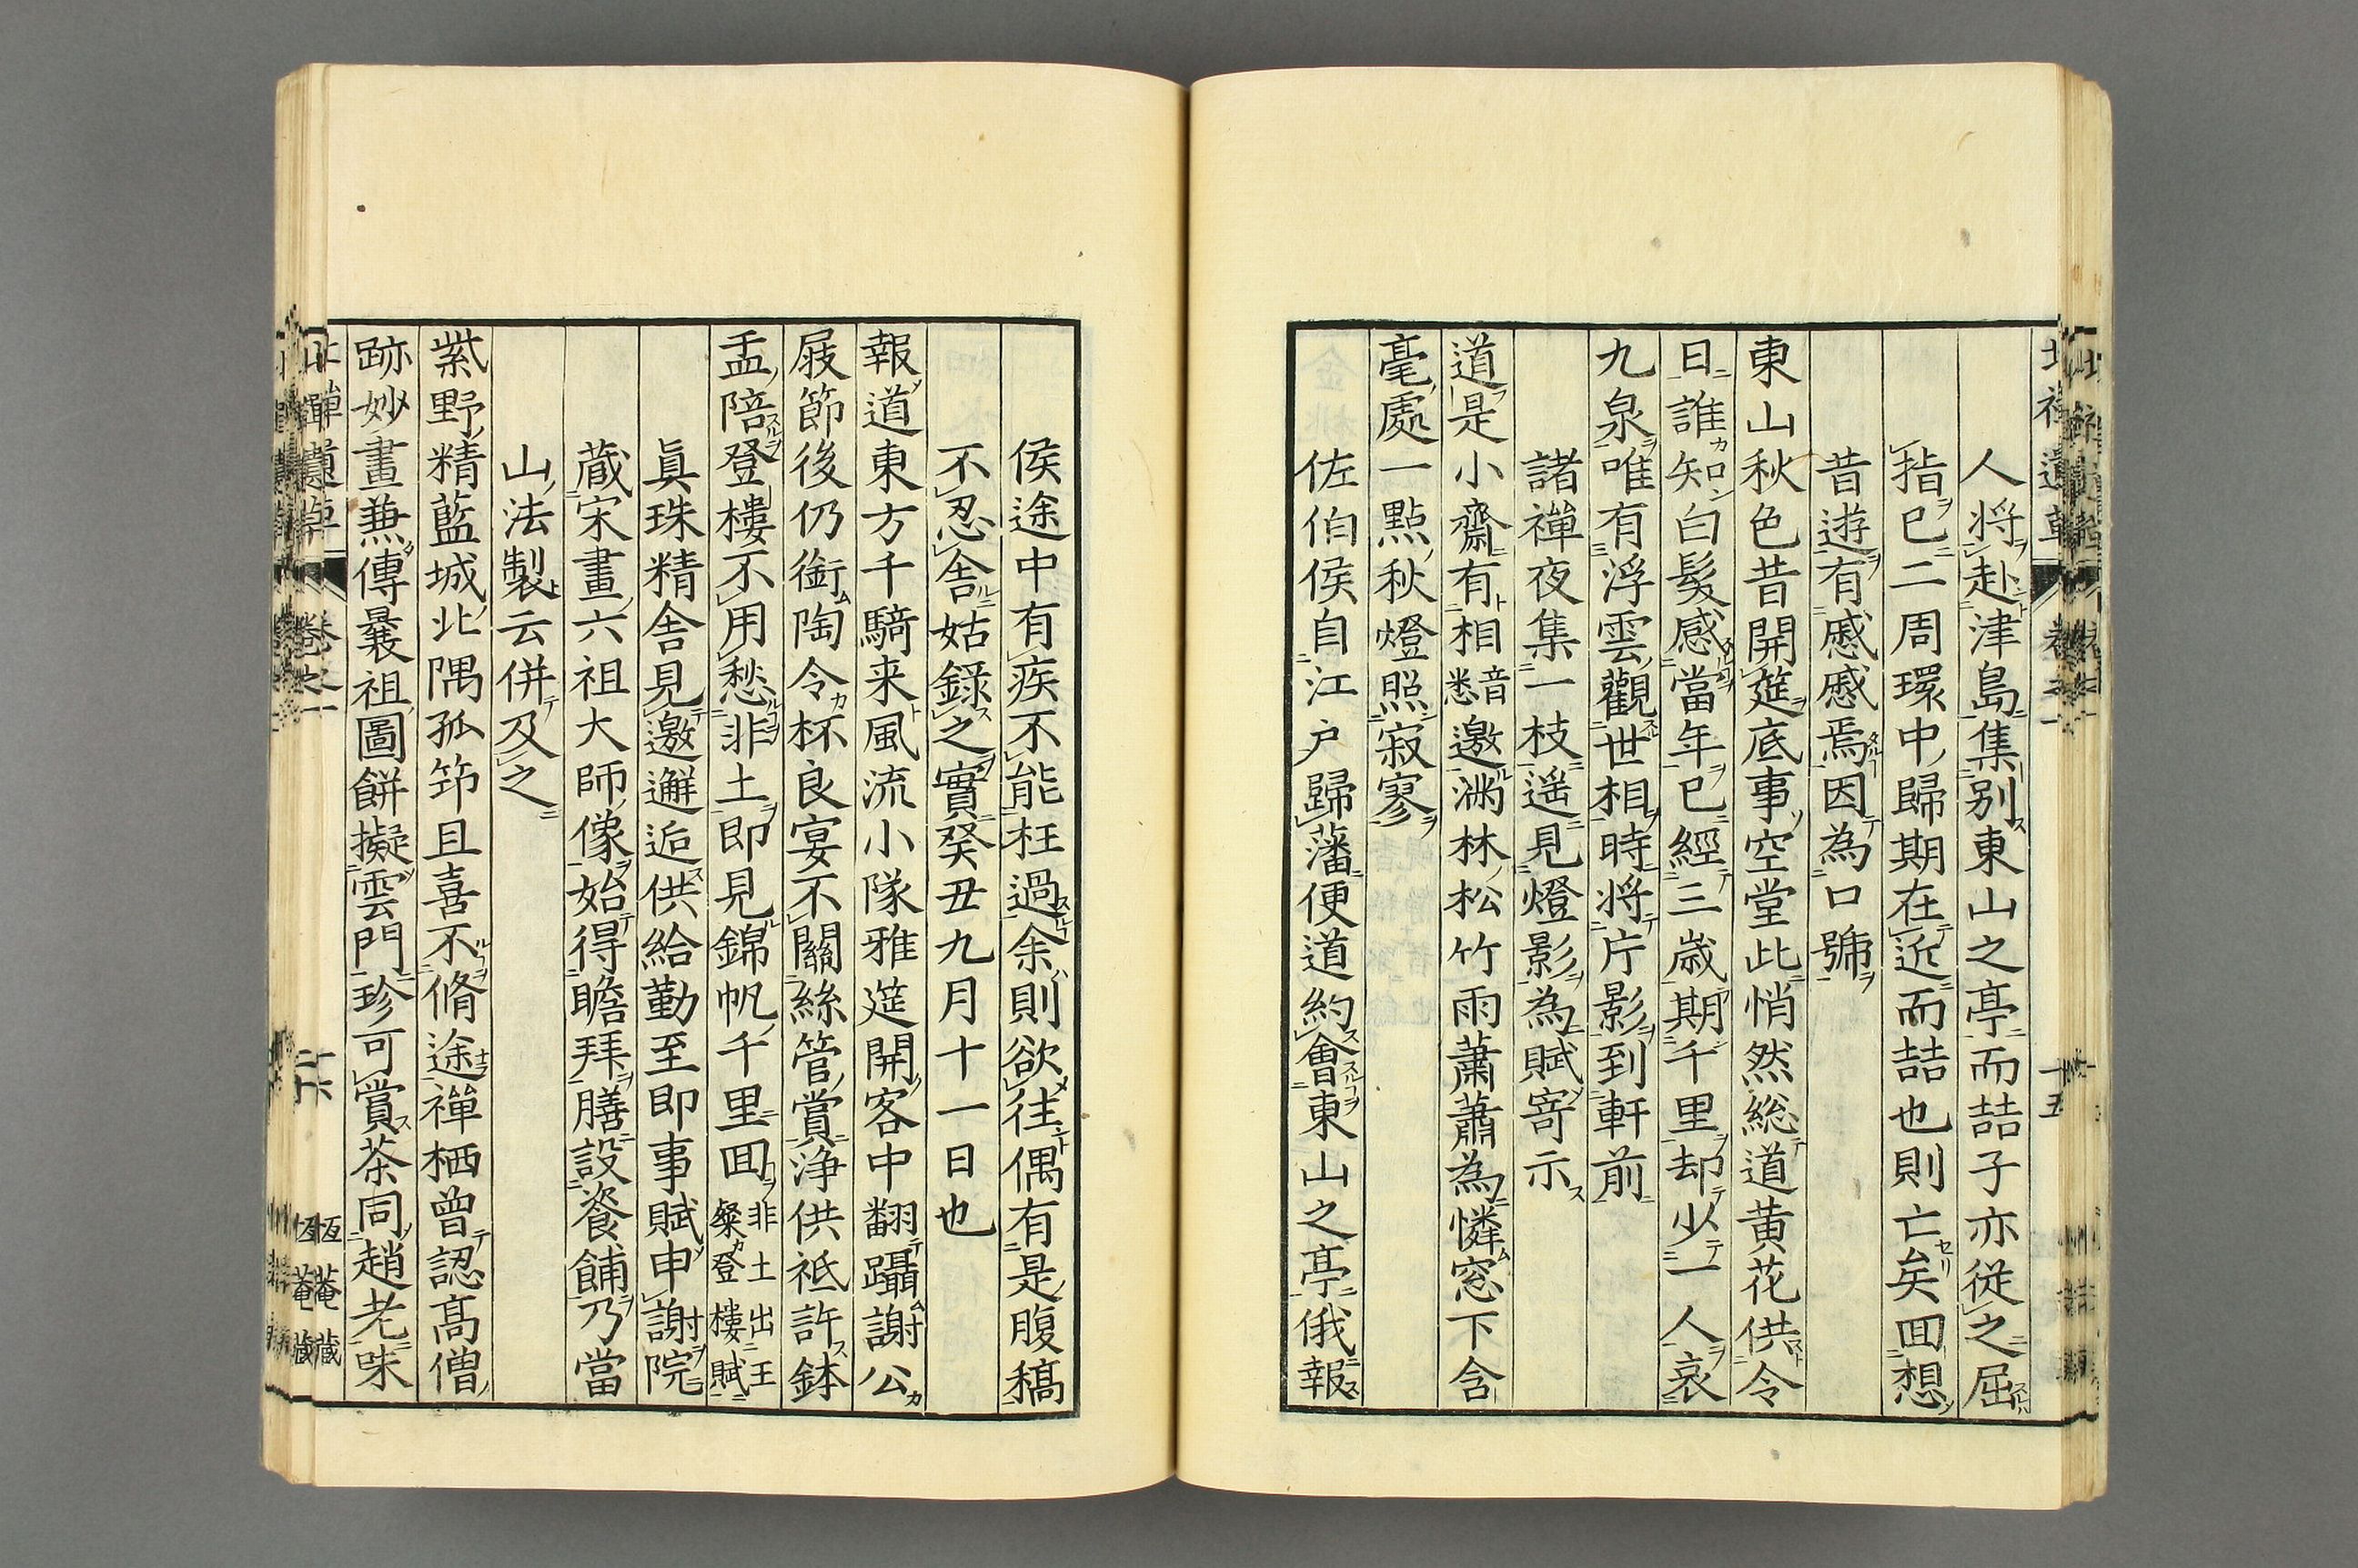 人將赴津島集別東山之亭而喆子亦從之屈
指已二周環中歸期在近而喆也則亡矣回想
昔遊有慼慼焉因為口號
東山秋色昔開筵底事空堂此悄然総道黄花供令
日誰知白髮感當年已經三歳期千里却少一人哀
九泉唯有浮雲觀世相時將片影到軒前
諸禪夜集一枝遥見燈影為賦寄示
道是小齋有相音悉邀淋林松竹雨蕭蕭為憐窓下含
毫處一點秋燈照寂寥
佐伯侯自江戶歸藩便道約會東山之亭俄報
侯途中有疾不能枉過余則欲往偶有是腹稿
不忍舍姑錄之實癸丑九月十一日也
報道東方千騎来風流小隊雅筵開客中翻躡謝公
屐節後仍銜陶令杯良宴不關絲管賞淨供祗許鉢
盂陪登樓不用愁非土即見錦帆千里回非土出王粲登樓賦
眞珠精舎見邀邂逅供給勤至即事賦申謝院
蔵宋畫六祖大師像始得瞻拜膳設餈餔乃當
山法製云併及之
紫野精藍城北隅孤筇且喜不脩途禪栖曾認髙僧
跡妙畫兼傳曩祖圖餅擬雲門珍可賞茶同趙老味
卷之一
十五